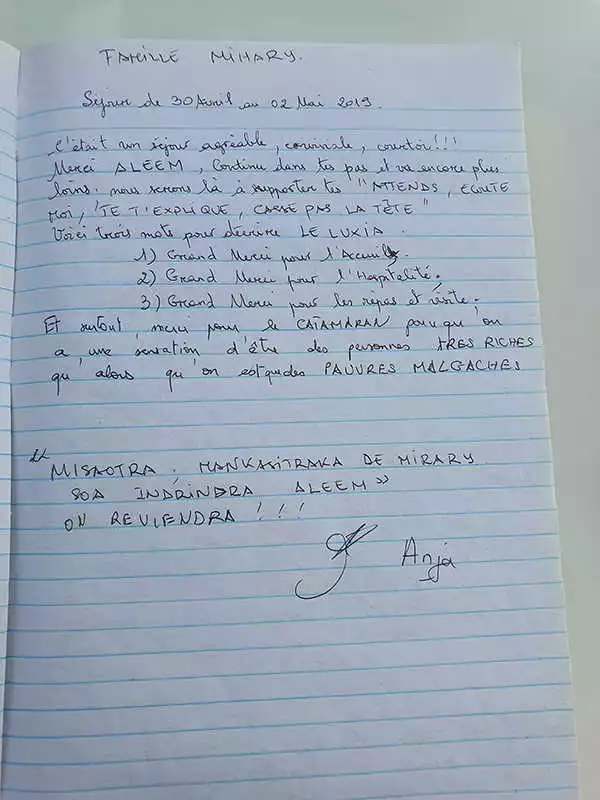 FAMILLE MIHARY.
Séjour de 30 Avril au 02 Mai 2019.
C'était un séjour agréable, conviviale, courtois!!!
Merci ALEEM, Continu dans tes pas et va encore plus
loins. nous serons là à supporter tes "ATTENDS, ECOUTE
MOI, JE T'EXPLIQUE, CASSE PAS LA TÊTE"
Voici trois mots pour décrire LE LUXIA.
1) Grand Merci pour l'Acceuil.
2) Grand Merci pour l'Hospitalité.
3) Grand Merci pour les repas et visite.
Et surtout, merci pour le CATAMARAN parcequ'on
a une sensation d'être des personnes TRES RICHES
qu'alors qu'on est que des PAUVRES MALGACHES
" MISAOTRA, MANKASITRAKA DE MIRARY
SOA INDRINDRA ALEEM "
ON REVIENDRA !!!
Anja